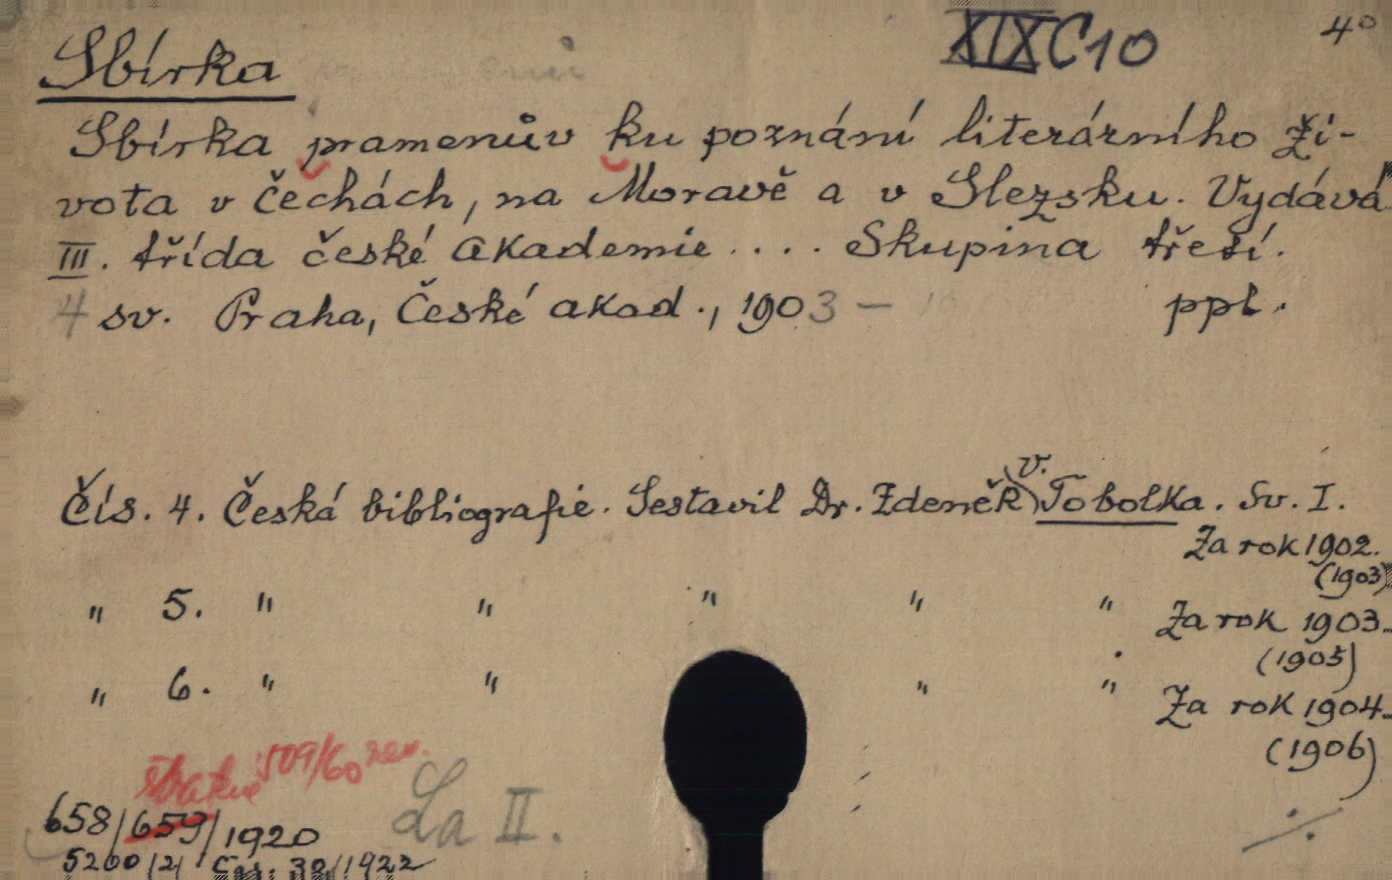 Sbírka
XIX C 10
4°
Sbírka pramenův ku poznání literárního ži-
vota v čechách, na Moravě a v Slezsku. Vydává
III. třída české akademie .... Skupina třetí.
4 sv. Praha, České akad., 1903 — ppl.
Čís. 4. Česká bibliografie. Sestavil Dr. Zdeněk V. Tobolka. Sv. I.
Za rok 1902.
(1903)
" 5. " " " " " Za rok 1903.
(1905)
" 6. " " " " Za rok 1904.
(1906)
509/60 rev.
658/659/1920
La II.
5200/21 38/1922